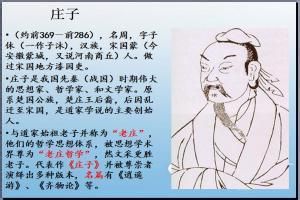 庄子
•（约前369－前286），名周，字子
休（一作子沐），汉族，宋国蒙（今
安徽蒙城，又说河南商丘）人。做
过宋国地方漆园吏。
•庄子是我国先秦（战国）时期伟大
的思想家、哲学家、和文学家。原
系楚国公族，楚庄王后裔，后因乱
迁至宋国，是道家学说的主要创始
人。
•与道家始祖老子并称为“老庄”，
他们的哲学思想体系，被思想学术
界尊为“老庄哲学”，然文采更胜
老子。代表作《庄子》并被尊崇者
演绎出多种版本，名篇有《逍遥
游》、《齐物论》等。